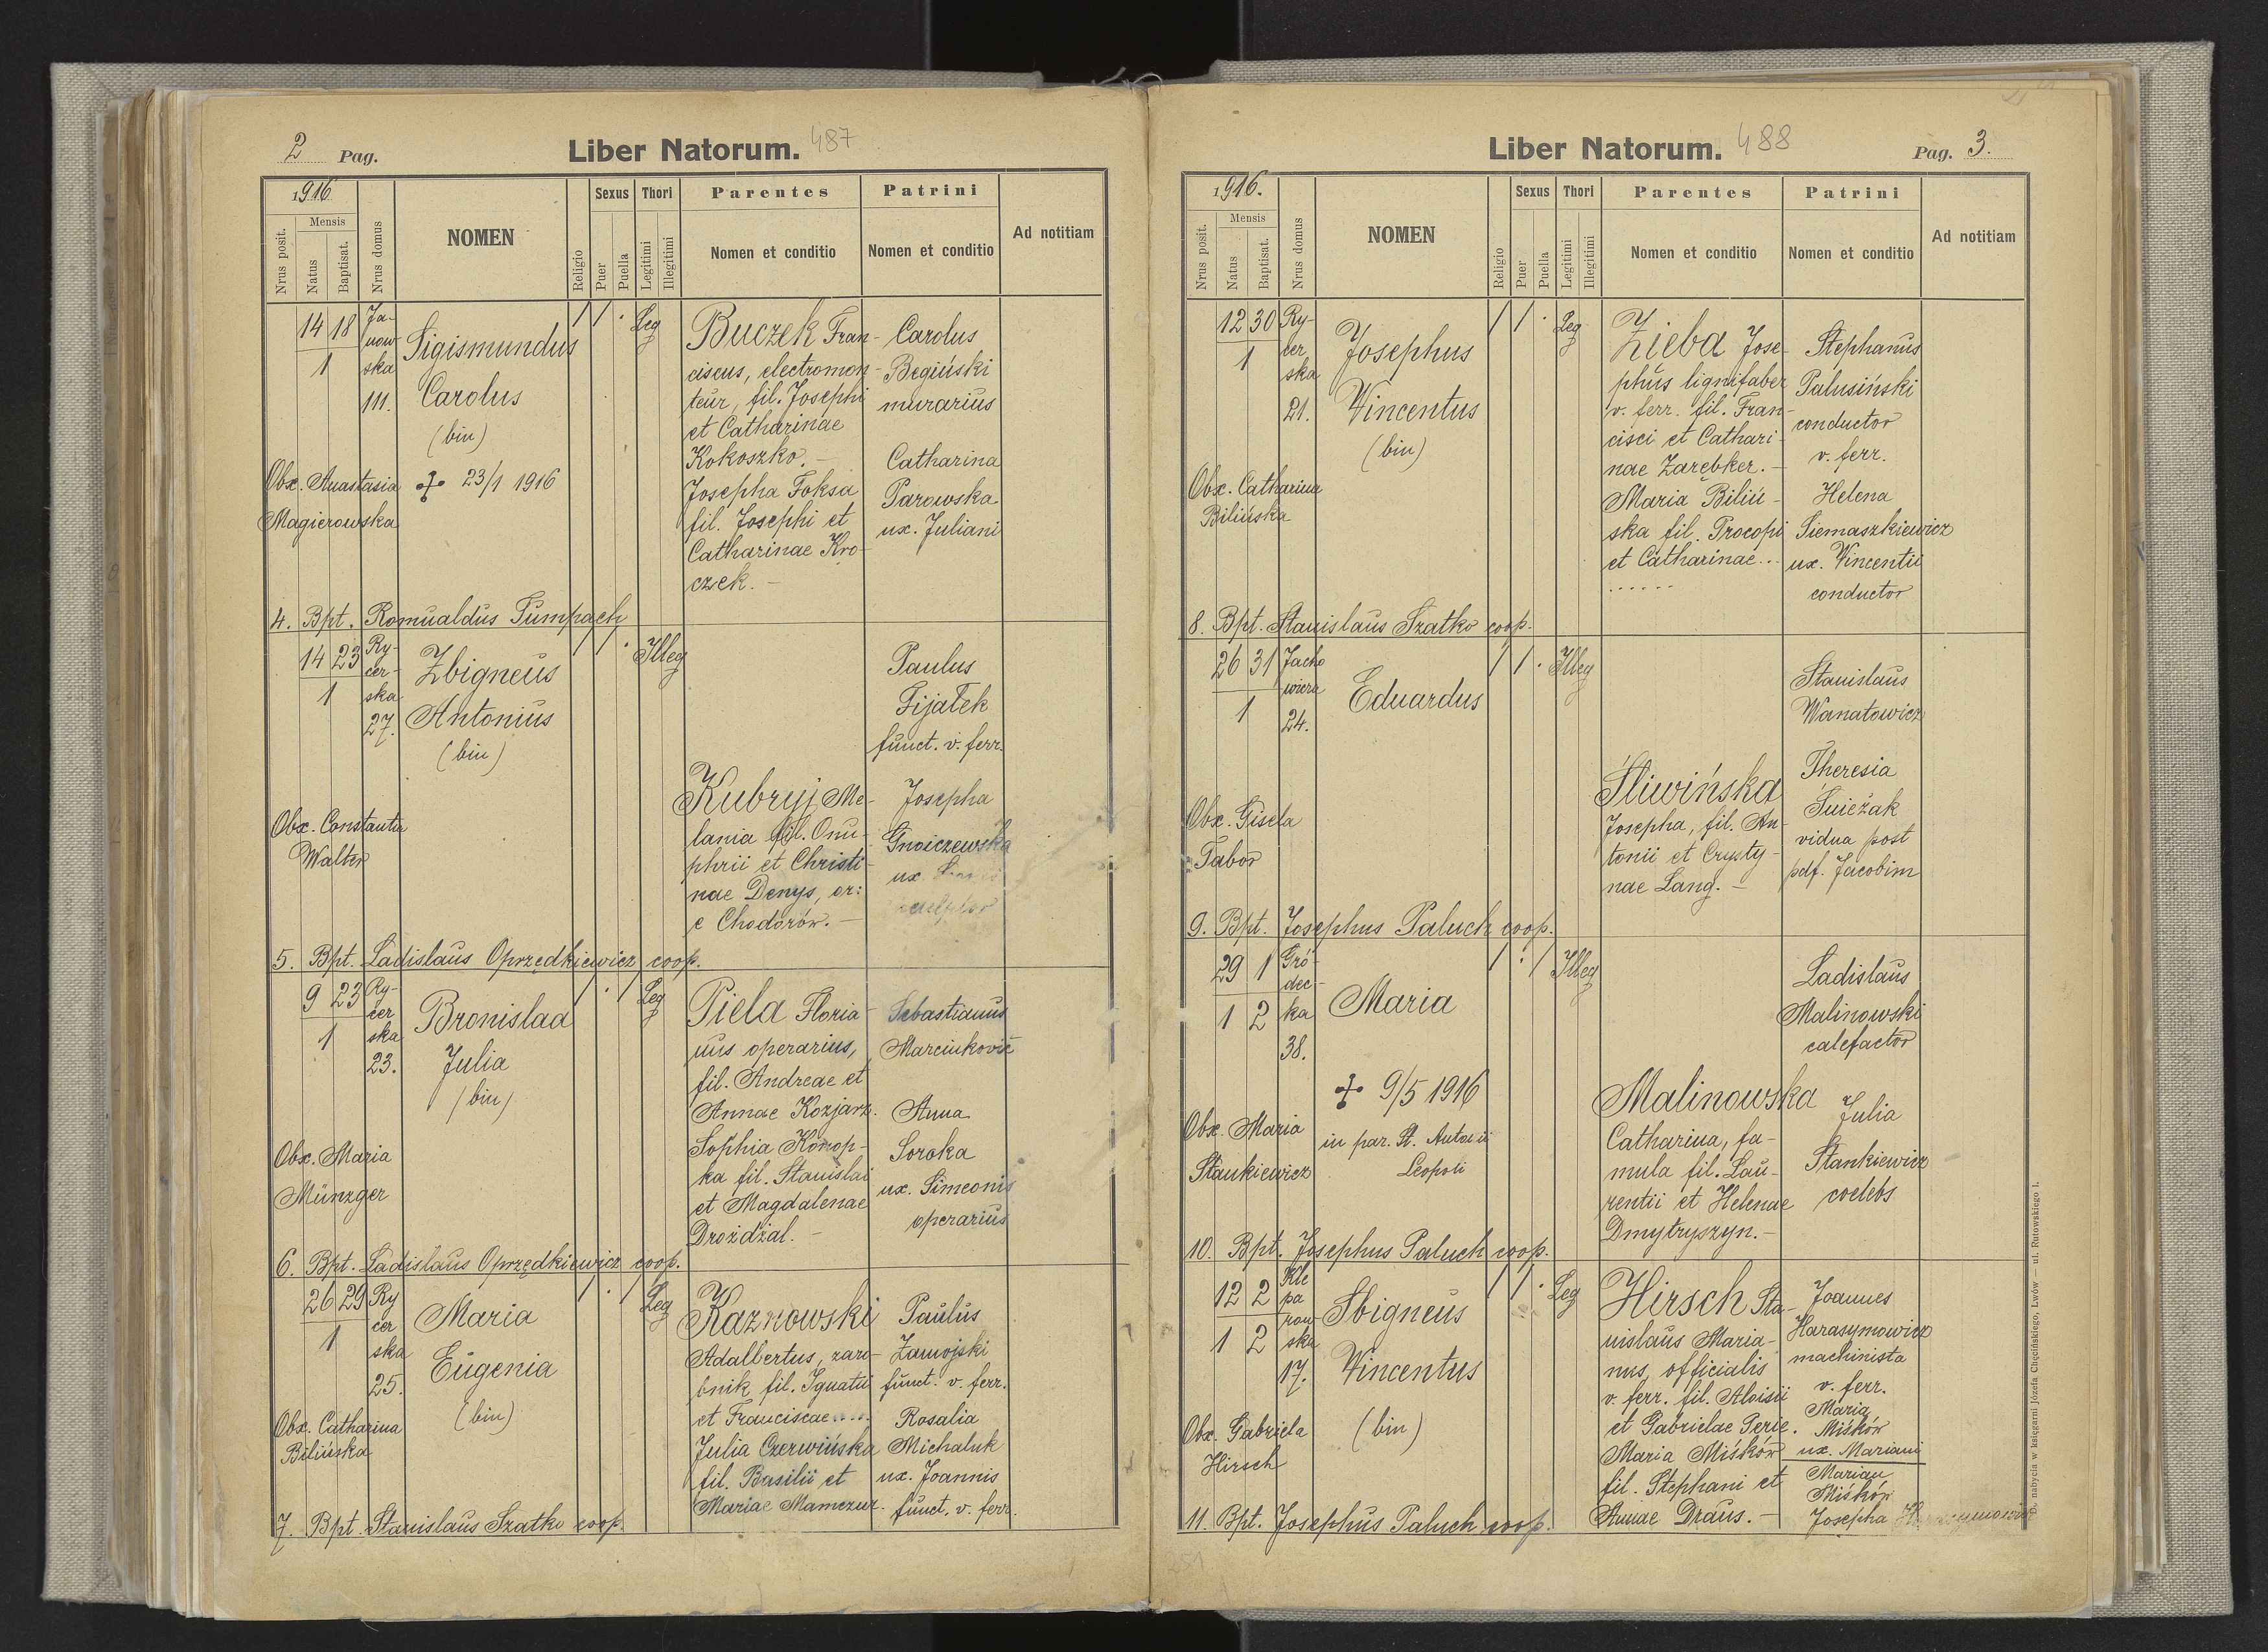 2 Pag.
Liber Natorum. 487
1916
Nrus posit.
Mensis
Natus
Baptisat.
Nrus domus
NOMEN
Religio
Sexus
Puer
Puella
Thori
Legitimi
Illegitimi
Parentes
Nomen et conditio
Patrini
Nomen et conditio
Ad notitiam
14 18
1
Ja-
now-
ska
111.
Sigismundus
Carolus
(bin)
+ 23/1 1916
Obx. Anastasia
Magierowska
Leg
Buczek Fran-
ciscus, electromon-
teur, fil. Josephi
et Catharinae
Kokoszko. -
Josepha Foksa
fil. Josephi et
Catharinae Kro-
czek. -
Carolus
Begiński
murarius
Catharina
Parowska
ux. Juliani
4. Bpt. Romualdus Tumpach
14 23
1
Ry-
cer-
ska
27.
Zbigneus
Antonius
(bin)
Obx. Constantia
Walter
Illeg
Kubryj Me-
lania fil. Onu-
phrii et Christi-
nae Denys, or:
e Chodorów. -
Paulus
Fijałek
funct. v. ferr.
Josepha
Gnoiczewska
ux.
5. Bpt. Ladislaus Oprzędkiewicz coop.
9 23
1
Ry-
cer
ska
23.
Bronislaa
Julia
(bin)
Obx. Maria
Münzger
Leg
Piela Floria-
nus operarius,
fil. Andreae et
Annae Kozjarz.
Sophia Konop-
ka fil. Stanislai
et Magdalenae
Drożdżal. -
Sebastianus
Marcinković
Anna
Soroka
ux. Simeonis
operarius
6. Bpt. Ladislaus Oprzędkiewicz coop.
26 29
1
Ry
cer
ska
25.
Maria
Eugenia
(bin)
Obx. Catharina
Bilińska
Leg
Kaznowski
Adalbertus, zaro-
bnik fil. Ignatii
et Franciscae....
Julia Czerwińska
fil. Basilii et
Mariae Mamczur.
Paulus
Zamojski
funct. v. ferr.
Rosalia
Michaluk
ux. Joannis
funct. v. ferr.
7. Bpt. Stanislaus Szatko coop.
Liber Natorum. 488
Pag. 3.
1916.
Nrus posit.
Mensis
Natus
Baptisat.
Nrus domus
NOMEN
Religio
Sexus
Puer
Puella
Thori
Legitimi
Illegitimi
Parentes
Nomen et conditio
Patrini
Nomen et conditio
Ad notitiam
12 30
1
Ry-
cer
ska
21.
Josephus
Vincentus
(bin)
Obx. Catharina
Bilińska
Leg
Zieba Jose-
phus lignifaber
v. ferr. fil. Fran-
cisci et Cathari-
nae Zarębker. -
Maria Biliń-
ska fil. Procopi
et Catharinae...
......
Stephanus
Palusiński
conductor
v. ferr.
Helena
Siemaszkiewicz
ux. Vincentii
conductor
8. Bpt. Stanislaus Szatko coop.
26 31
1
Jacho
wicza
24.
Eduardus
Obx. Gisela
Tabor
Illeg
Śliwińska
Josepha, fil. An-
tonii et Crysty-
nae Lang. -
Stanislaus
Wanatowicz
Theresia
Śnieżak
vidua post
pdf. Jacobim
9. Bpt. Josephus Paluch coop.
29 1
1 2
Gró-
dec-
ka
38.
Maria
+ 9/5 1916
in par. St. Antonii
Leopoli
Obx. Maria
Stankiewicz
Illeg
Malinowska
Catharina, fa-
mula fil. Lau-
rentii et Helenae
Dmytryszyn. -
Ladislaus
Malinowski
calefactor
Julia
Stankiewicz
coelebs
10. Bpt. Josephus Paluch coop.
12 2
1 2
Kle
pa
row-
ska
17.
Sbigneus
Vincentus
(bin)
Obx. Gabriela
Hirsch
Leg
Hirsch Sta-
nislaus Maria-
nus, officialis
v. ferr. fil. Aloisii
et Gabrielae Perie.
Maria Miśków
fil. Stephani et
Annae Draus. -
Joannes
Harasymowicz
machinista
v. ferr.
Maria
Miśków
ux. Mariani
Marian
Miśków
Josepha
11. Bpt. Josephus Paluch coop.
nabycia w księgarni Józefa Chęcińskiego, Lwów — ul. Rutowskiego 1.
251